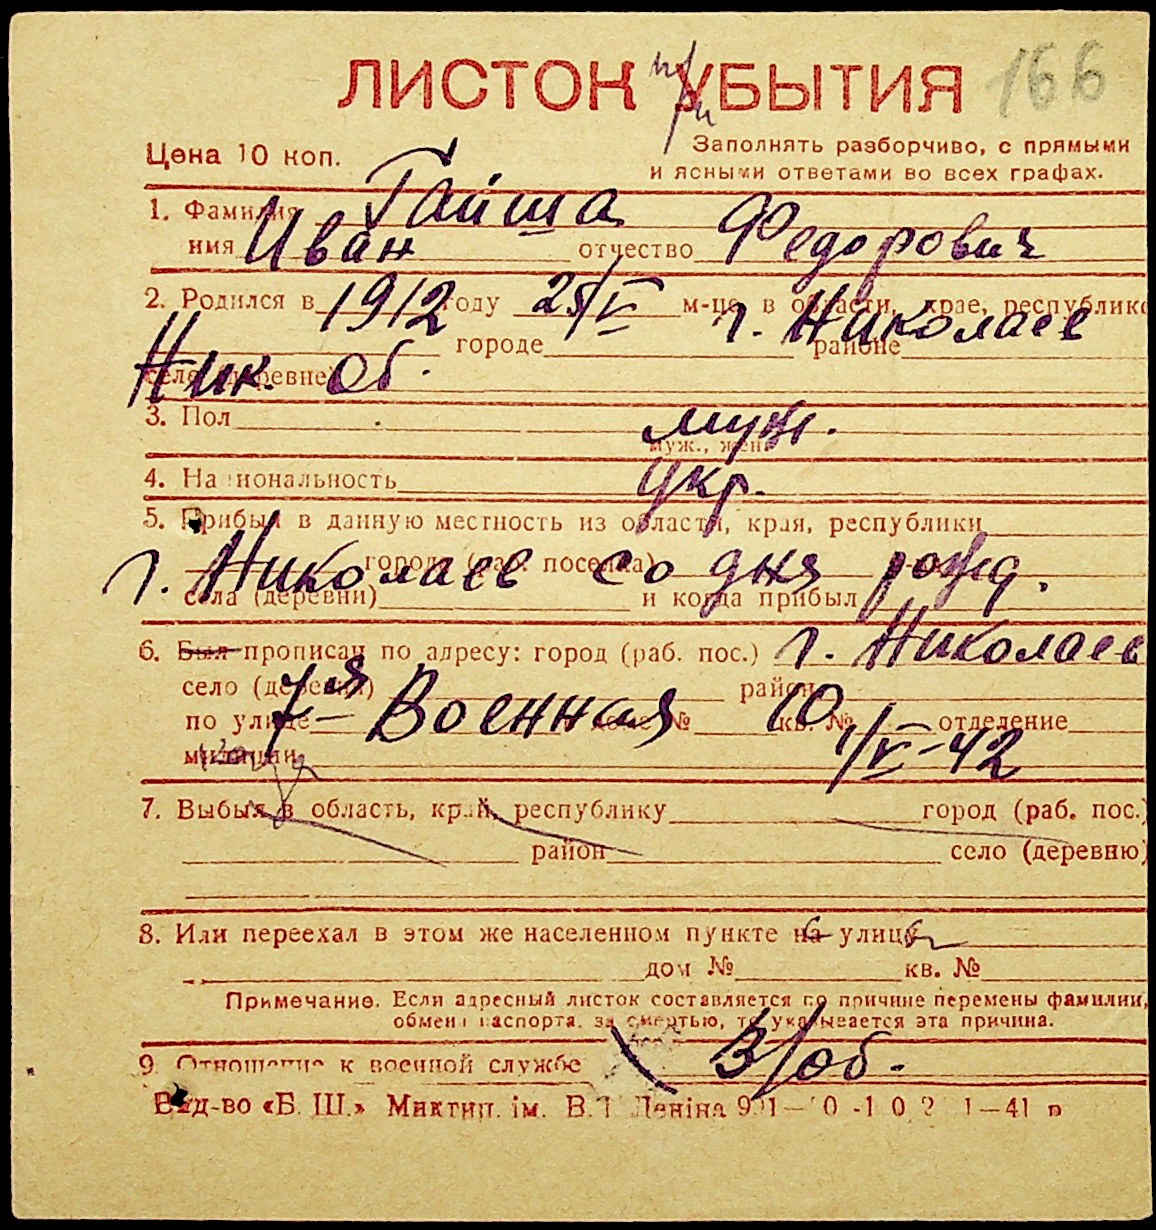 ЛИСТОК УБЫТИЯ 166
при
Цена 10 коп.
Заполнять разборчиво, с прямыми
и ясными ответами во всех графах.
1. Фамилия Гайша
имя Иван отчество Федорович
2. Родился в 1912 году 25/V м-це, в области, крае, республике г. Николаев
городе районе
селе (деревне) Ник. Об.
3. Пол муж.
муж., жен.
4. Национальность укр.
5. Прибыл в данную местность из области, края, республики
г. Николаев со дня рожд.
города (раб. поселка)
села (деревни) и когда прибыл
6. Был прописан по адресу: город (раб. пос.) г. Николаев
село (деревня) район
по улице 7-я Военная дом № 10 кв. № отделение
милиции 1/V-42
7. Выбыл в область, край, республику город (раб. пос.)
район село (деревню)
8. Или переехал в этом же населенном пункте на улицу
дом № кв. №
Примечание. Если адресный листок составляется по причине перемены фамилии,
обмена паспорта, за смертью, то указывается эта причина.
9. Отношение к военной службе В/об.
Вид-во «Б. Ш.» Миктип. ім. В. І. Леніна